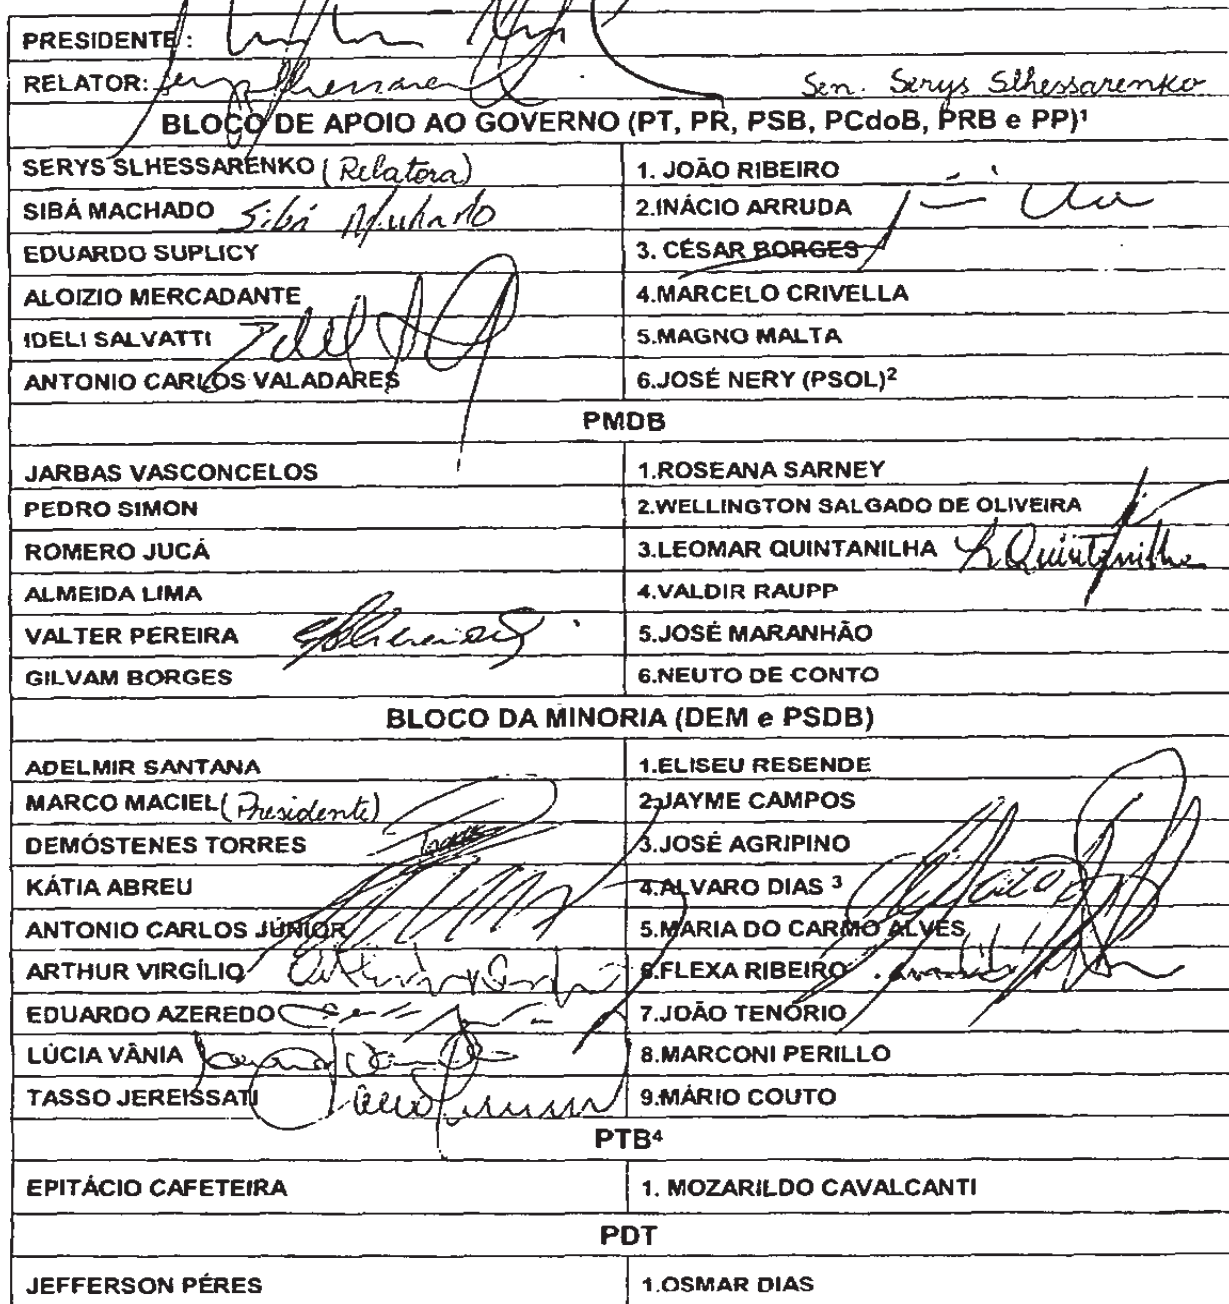 PRESIDENTE :
RELATOR: Serys Slhessarenko Sen. Serys Slhessarenko
BLOCO DE APOIO AO GOVERNO (PT, PR, PSB, PCdoB, PRB e PP)¹
SERYS SLHESSARENKO (Relatora) 1. JOÃO RIBEIRO
SIBÁ MACHADO Sibá Machado 2.INÁCIO ARRUDA
EDUARDO SUPLICY 3. CÉSAR BORGES
ALOIZIO MERCADANTE 4.MARCELO CRIVELLA
IDELI SALVATTI Ideli 5.MAGNO MALTA
ANTONIO CARLOS VALADARES 6.JOSÉ NERY (PSOL)²
PMDB
JARBAS VASCONCELOS 1.ROSEANA SARNEY
PEDRO SIMON 2.WELLINGTON SALGADO DE OLIVEIRA
ROMERO JUCÁ 3.LEOMAR QUINTANILHA L. Quintanilha
ALMEIDA LIMA 4.VALDIR RAUPP
VALTER PEREIRA 5.JOSÉ MARANHÃO
GILVAM BORGES 6.NEUTO DE CONTO
BLOCO DA MINORIA (DEM e PSDB)
ADELMIR SANTANA 1.ELISEU RESENDE
MARCO MACIEL (Presidente) 2.JAYME CAMPOS
DEMÓSTENES TORRES 3.JOSÉ AGRIPINO
KÁTIA ABREU 4.ALVARO DIAS ³
ANTONIO CARLOS JÚNIOR 5.MARIA DO CARMO ALVES
ARTHUR VIRGÍLIO 6.FLEXA RIBEIRO
EDUARDO AZEREDO 7.JOÃO TENÓRIO
LÚCIA VÂNIA 8.MARCONI PERILLO
TASSO JEREISSATI 9.MÁRIO COUTO
PTB⁴
EPITÁCIO CAFETEIRA 1. MOZARILDO CAVALCANTI
PDT
JEFFERSON PÉRES 1.OSMAR DIAS